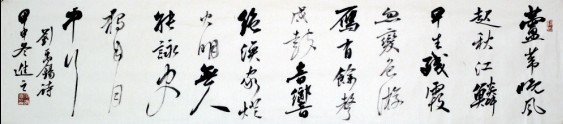 蘆葦晚風
起秋江鱗
甲生殘霞
忽變色游
鴈有餘聲
戍鼓音響
絕漁家燈
火明無人
能詠史
獨自月
中行
劉禹錫詩
甲申冬進之